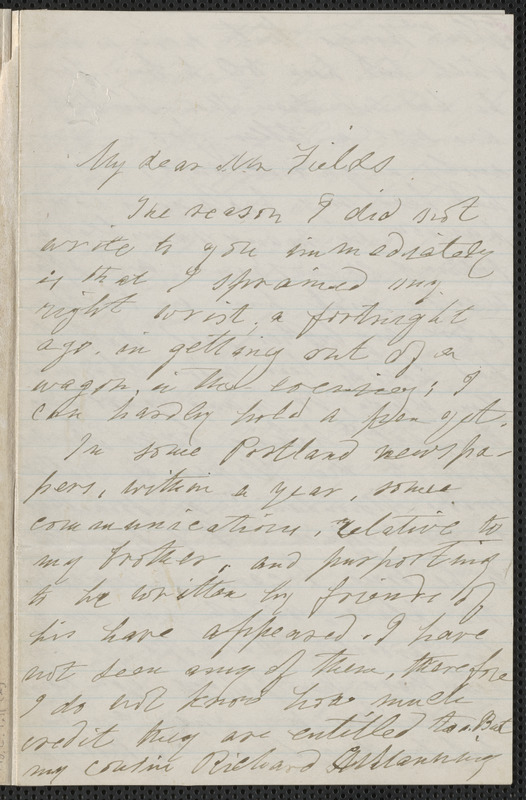 My dear Mr Fields
The reason I did not
write to you immediately
is that I sprained my
right wrist, a fortnight
ago, in getting out of a
wagon, in the evening; I
can hardly hold a pen yet.
In some Portland newspa-
pers, within a year, some
communications, relative to
my brother, and purporting
to be written by friends of
his have appeared. I have
not seen any of them, therefore
I do not know how much
credit they are entitled to. But
my cousin Richard Manning